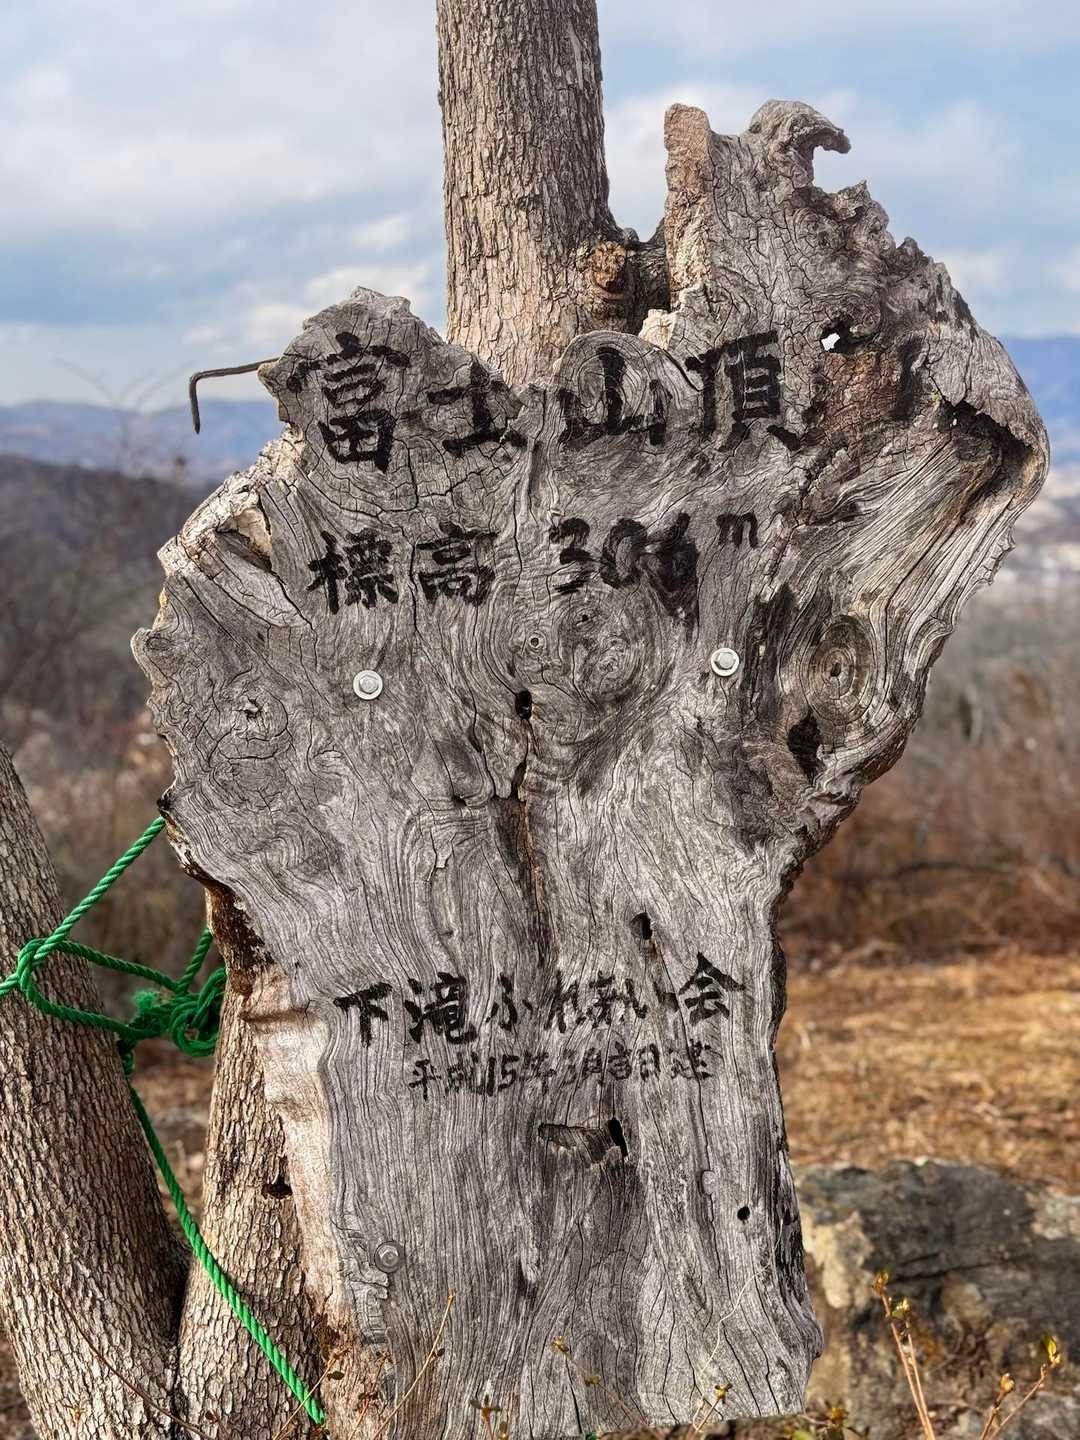 富士山頂
標高 304m
下滝ふれあい会
平成15年3月吉日建